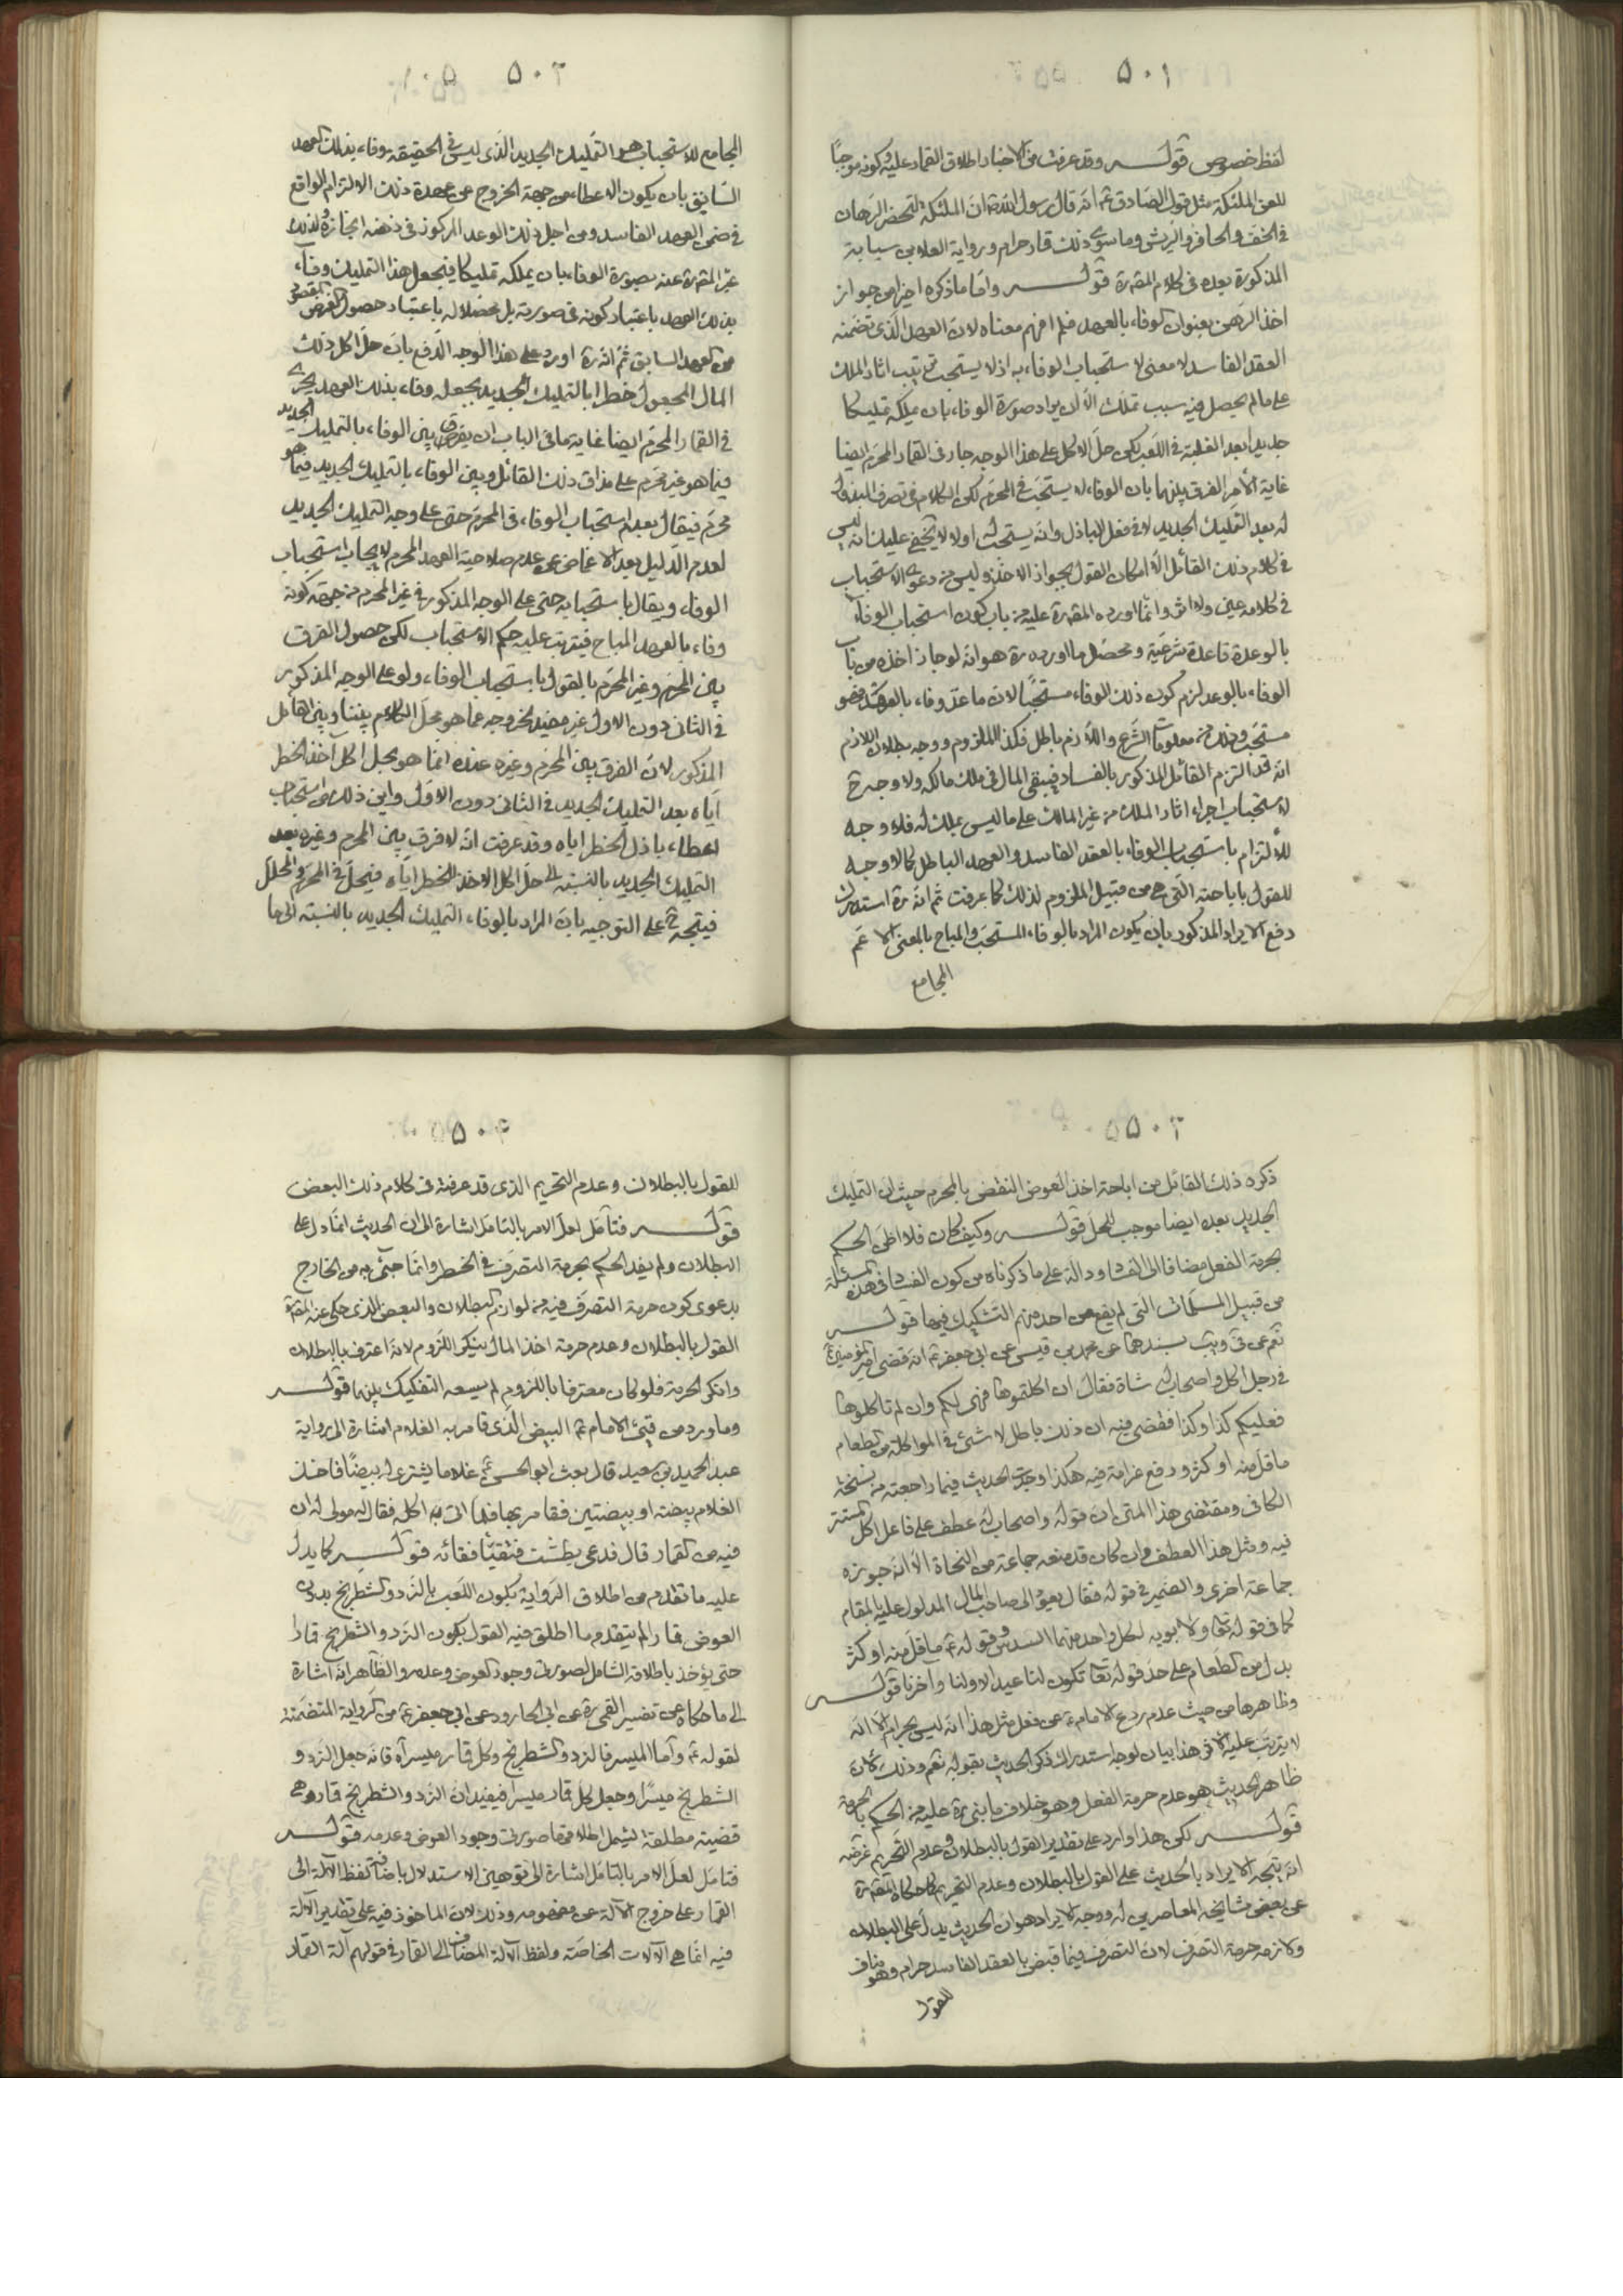 ٥٠١
لفظ خصوص قولـــه وقد عرفت من الاخبار اطلاق القمار عليه وكونه موجبًا
للعن الملئكة مثل قول الصادق ع انه قال رسول الله ص ان الملئكة لتحضر الرهان
فى الخف والحافر والريش وما سوى ذلك قمار حرام ورواية العلا بن سيابة
المذكورة بعده فى كلام المصره قولـــه واما ما ذكره اخيرا من جواز
اخذ الرهن بعنوان الوفاء بالعهد فلم افهم معناه لان العهد الذى تضمنه
العقد الفاسد لا معنى لاستحباب الوفاء به اذ لا يستحب ترتيب اثار الملك
على ما لم يحصل فيه سبب تملك الا ان يراد صورة الوفاء بان يملكه تمليكا
جديدا بعد الغلبة فى اللعب لكن حل الاكل على هذا الوجه جار فى القمار المحرم ايضا
غاية الامر الفرق بينهما بان الوفاء لا يستحب فى المحرم لكن الكلام فى تصرف المبذول
له بعد التمليك الجديد لا فى فعل الباذل وانه يستحب له اولا لا يخفى عليك انه ليس
فى كلام ذلك القائل الا امكان القول بجواز الاخذ وليس من دعوى الاستحباب
فى كلامه عين ولا اثر وانما اورده المصره عليه من باب كون استحباب الوفاء
بالوعدة قاعدة شرعية ومحصل ما اورده ره هو انه لو جاز اخذه من باب
الوفاء بالوعد لزم كون ذلك الوفاء مستحبًا لان ما عد وفاء بالعهد فهو
مستحب وذلك من معلومات الشرع واللازم باطل فكذا الملزوم ووجه بطلان اللازم
انه قد التزم القائل المذكور بالفساد فيبقى المال فى ملك مالكه ولا وجه ح
لاستحباب اجراء اثار الملك من غير المالك على ما ليس بملك له فلا وجه
للالتزام باستحباب الوفاء بالعقد الفاسد والعهد الباطل كما لا وجه
للقول باباحته التى هى من قبيل الملزوم لذلك كما عرفت ثم انه ره استدرك
دفع الايراد المذكور بان يكون المراد بالوفاء المستحب والمباح بالمعنى الاعم
الجامع
٥٠٢
الجامع للاستحباب هو التمليك الجديد الذى ليس فى الحقيقة وفاء بذلك العهد
السابق بان يكون الاعطاء من جهة الخروج عن عهدة ذلك الالتزام الواقع
فى ضمن العهد الفاسد ومن اجل ذلك الوعد المركوز فى ذهنه انجازه ولذلك
عبر المصره عنه بصورة الوفاء بان يملكه تمليكا فيجعل هذا التمليك وفاء
بذلك العهد باعتبار كونه فى صورته بل محصلا له باعتبار حصول الغرض المقصود
من العهد السابق ثم انه ره اورد على هذا الوجه الدفع بان حل اكل ذلك
المال المجعول خطرا بالتمليك الجديد بجعله وفاء بذلك العهد يجرى
فى القمار المحرم ايضا غاية ما فى الباب ان يفرق بين الوفاء بالتمليك الجديد
فيما هو غير محرم على مذاق ذلك القائل وبين الوفاء بالتمليك الجديد فيما هو
محرم فيقال بعدم استحباب الوفاء فى المحرم حتى على وجه التمليك الجديد
لعدم الدليل بعد الاغماض عن عدم صلاحية العهد المحرم لايجاب استحباب
الوفاء ويقال باستحبابه حتى على الوجه المذكور فى غير المحرم من جهة كونه
وفاء بالعهد المباح فيترتب عليه حكم الاستحباب لكن حصول الفرق
بين المحرم وغير المحرم بالقول باستحباب الوفاء ولو على الوجه المذكور
فى الثانى دون الاول غير مفيد لخروجه عما هو محل الكلام بيننا وبين القائل
المذكور لان الفرق بين المحرم وغيره عنده انما هو بحل اكل اخذ الخطر
اياه بعد التمليك الجديد فى الثانى دون الاول واين ذلك من استحباب
اعطاء باذل الخطر اياه وقد عرفت انه لا فرق بين المحرم وغيره بعد
التمليك الجديد بالنسبة الى حل اكل الاخذ للخطر اياه فيحل فى المحرم والمحلل
فيتجه ح على التوجيه بان المراد بالوفاء التمليك الجديد بالنسبة الى ما
٥٠٣
ذكره ذلك القائل من اباحة اخذ العوض النقض بالمحرم حيث ان التمليك
الجديد بعده ايضا موجب للحل قولـــه وكيف كان فلا اظن الحكم
بحرمة الفعل مضافا الى الفساد دلالة على ما ذكرناه من كون الفساد فى هذه المسئلة
من قبيل المسلمات التى لم يقع من احد منهم التشكيك فيها قولـــه
نعم عن فى ويب بسندهما عن محمد بن قيس عن ابى جعفر ع انه قضى امير المؤمنين ع
فى رجل اكل واصحاب له شاة فقال ان اكلتموها فهى لكم وان لم تاكلوها
فعليكم كذا وكذا فقضى فيه ان ذلك باطل لا شئ فى المواكلة من الطعام
ما قل منه او كثر ودفع غرامة فيه هكذا وجدت الحديث فيما راجعته من نسخة
الكافى ومقتضى هذا المتن ان قوله واصحاب له عطف على فاعل اكل المستتر
فيه ومثل هذا العطف وان كان قد منعه جماعة من النحاة الا انه جوزه
جماعة اخرى والضمير فى قوله فقال يعود الى صاحب المال المدلول عليه بالمقام
كما فى قوله تعا ولابويه لكل واحد منهما السدس وقوله ع ما قل منه او كثر
بدل من الطعام على حد قوله تعا تكون لنا عيدا لاولنا واخرنا قولـــه
وظاهرها من حيث عدم ردع الامام ع عن فعل مثل هذا انه ليس بحرام الا انه
لا يترتب عليه الاثر هذا بيان لوجه استدراك ذكر الحديث بقوله نعم وذلك لان
ظاهر الحديث هو عدم حرمة الفعل وهو خلاف ما بنى ره عليه من الحكم بالحرمة
قولـــه لكن هذا وارد على تقدير القول بالبطلان وعدم التحريم غرضه
انه يتجه الايراد بالحديث على القول بالبطلان وعدم التحريم كما حكاه المصره
عن بعض مشايخه المعاصرين له ووجه الايراد هو ان الحديث يدل على البطلان
ولازمه حرمة التصرف لان التصرف فيما قبض بالعقد الفاسد حرام وهو مناف
للقول
٥٠٤
للقول بالبطلان وعدم التحريم الذى قد عرفته فى كلام ذلك البعض
قولـــه فتأمل لعل الامر بالتامل اشارة الى ان الحديث انما دل على
البطلان ولم يفد الحكم بحرمة التصرف فى الخطر وانما جئ به من الخارج
بدعوى كون حرمة التصرف فيه من لوازم البطلان والبعض الذى حكى عنه المصره
القول بالبطلان وعدم حرمة اخذ المال ينكر اللزوم لانه اعترف بالبطلان
وانكر الحرمة فلو كان معترفا باللزوم لم يسعه التفكيك بينهما قولـــه
وما ورد من قئ الامام ع البيض الذى قامر به الغلام اشارة الى رواية
عبد الحميد بن سعيد قال بعث ابو الحسن ع غلاما يشترى له بيضًا فاخذ
الغلام بيضة او بيضتين فقامر بها فلما اتى به اكله فقال له مولى له ان
فيه من القمار قال فدعى بطشت فتقيّا فقائه قولـــه كما يدل
عليه ما تقدم من اطلاق الرواية بكون اللعب بالنرد والشطرنج بدون
العوض قمارا لم يتقدم ما اطلق فيه القول بكون النرد والشطرنج قمارا
حتى يؤخذ باطلاقه الشامل لصورتى وجود العوض وعدمه والظاهر انه اشارة
الى ما حكاه عن تفسير القمى ره عن ابى الجارود عن ابى جعفر ع من الرواية المتضمنة
لقوله ع واما الميسر فالنرد والشطرنج وكل قمار ميسر اه فانه جعل النرد و
الشطرنج ميسرًا وجعل كل قمار ميسرا فيفيد ان النرد والشطرنج قمار وهى
قضية مطلقة يشمل اطلاقها صورتى وجود العوض وعدمه قولـــه
فتامل لعل الامر بالتامل اشارة الى توهين الاستدلال باضافة لفظ الآلة الى
القمار على خروج الآلة عن مفهومه وذلك لان الماخوذ فيه على تقدير الآلة
فيه انما هى الآلات الخاصة ولفظ الآلة المضاف الى القمار فى قولهم آلة القمار